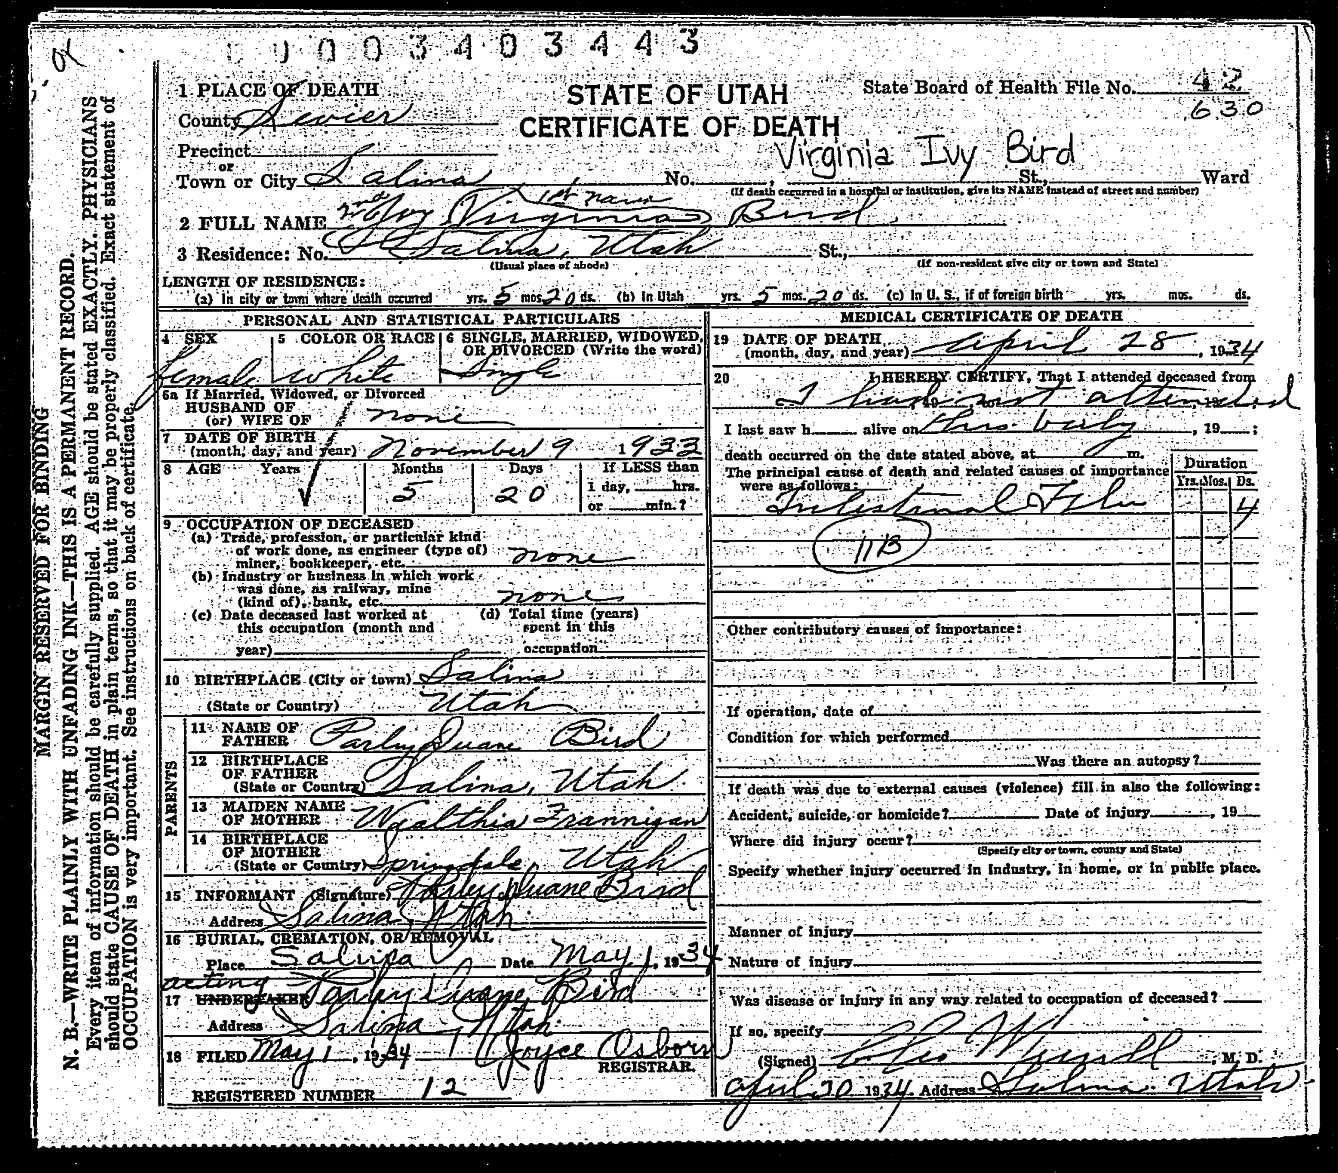 0003403443
1 PLACE OF DEATH
STATE OF UTAH
CERTIFICATE OF DEATH
State Board of Health File No. 42
630
County Sevier
Precinct
or
Town or City Salina No. , St., Ward
Virginia Ivy Bird
(If death occurred in a hospital or institution, give its NAME instead of street and number)
1st name
2 FULL NAME Ivy Virginia Bird
3 Residence: No. Salina, Utah St.,
(Usual place of abode) (If non-resident give city or town and State)
LENGTH OF RESIDENCE:
(a) In city or town where death occurred yrs. 5 mos. 20 ds. (b) In Utah yrs. 5 mos. 20 ds. (c) In U. S., if of foreign birth yrs. mos. ds.
PERSONAL AND STATISTICAL PARTICULARS
4 SEX female
5 COLOR OR RACE white
6 SINGLE, MARRIED, WIDOWED, OR DIVORCED (Write the word) Single
6a If Married, Widowed, or Divorced
HUSBAND OF
(or) WIFE OF none
7 DATE OF BIRTH
(month, day, and year) November 9 1933
8 AGE Years Months Days If LESS than
5 20 1 day, hrs.
or min.?
9 OCCUPATION OF DECEASED
(a) Trade, profession, or particular kind
of work done, as engineer (type of)
miner, bookkeeper, etc. none
(b) Industry or business in which work
was done, as railway, mine
(kind of), bank, etc. none
(c) Date deceased last worked at
this occupation (month and
year)
(d) Total time (years)
spent in this
occupation
10 BIRTHPLACE (City or town) Salina
(State or Country) Utah
PARENTS
11 NAME OF
FATHER Parley Duane Bird
12 BIRTHPLACE
OF FATHER
(State or Country) Salina, Utah
13 MAIDEN NAME
OF MOTHER Wealthia Frannigan
14 BIRTHPLACE
OF MOTHER
(State or Country) Springdale, Utah
15 INFORMANT (Signature) Parley Duane Bird
Address Salina, Utah
16 BURIAL, CREMATION, OR REMOVAL
Place Salina Date May 1, 1934
acting
17 UNDERTAKER Parley Duane Bird
Address Salina, Utah
18 FILED May 1, 1934 Joyce Osborn
REGISTRAR.
REGISTERED NUMBER 12
MEDICAL CERTIFICATE OF DEATH
19 DATE OF DEATH
(month, day, and year) April 28, 1934
20 I HEREBY CERTIFY, That I attended deceased from
I had not attended
I last saw h alive on this baby, 19 ;
death occurred on the date stated above, at m.
The principal cause of death and related causes of importance
were as follows:
Duration
Yrs. Mos. Ds.
Intestinal Flu 4
11B
Other contributory causes of importance:
If operation, date of
Condition for which performed
Was there an autopsy?
If death was due to external causes (violence) fill in also the following:
Accident, suicide, or homicide? Date of injury , 19
Where did injury occur?
(Specify city or town, county and State)
Specify whether injury occurred in industry, in home, or in public place.
Manner of injury
Nature of injury
Was disease or injury in any way related to occupation of deceased?
If so, specify
(Signed) , M. D.
April 30 1934. Address Salina Utah
MARGIN RESERVED FOR BINDING
N. B.—WRITE PLAINLY WITH UNFADING INK—THIS IS A PERMANENT RECORD.
Every item of information should be carefully supplied. AGE should be stated EXACTLY. PHYSICIANS
should state CAUSE OF DEATH in plain terms, so that it may be properly classified. Exact statement of
OCCUPATION is very important. See instructions on back of certificate.